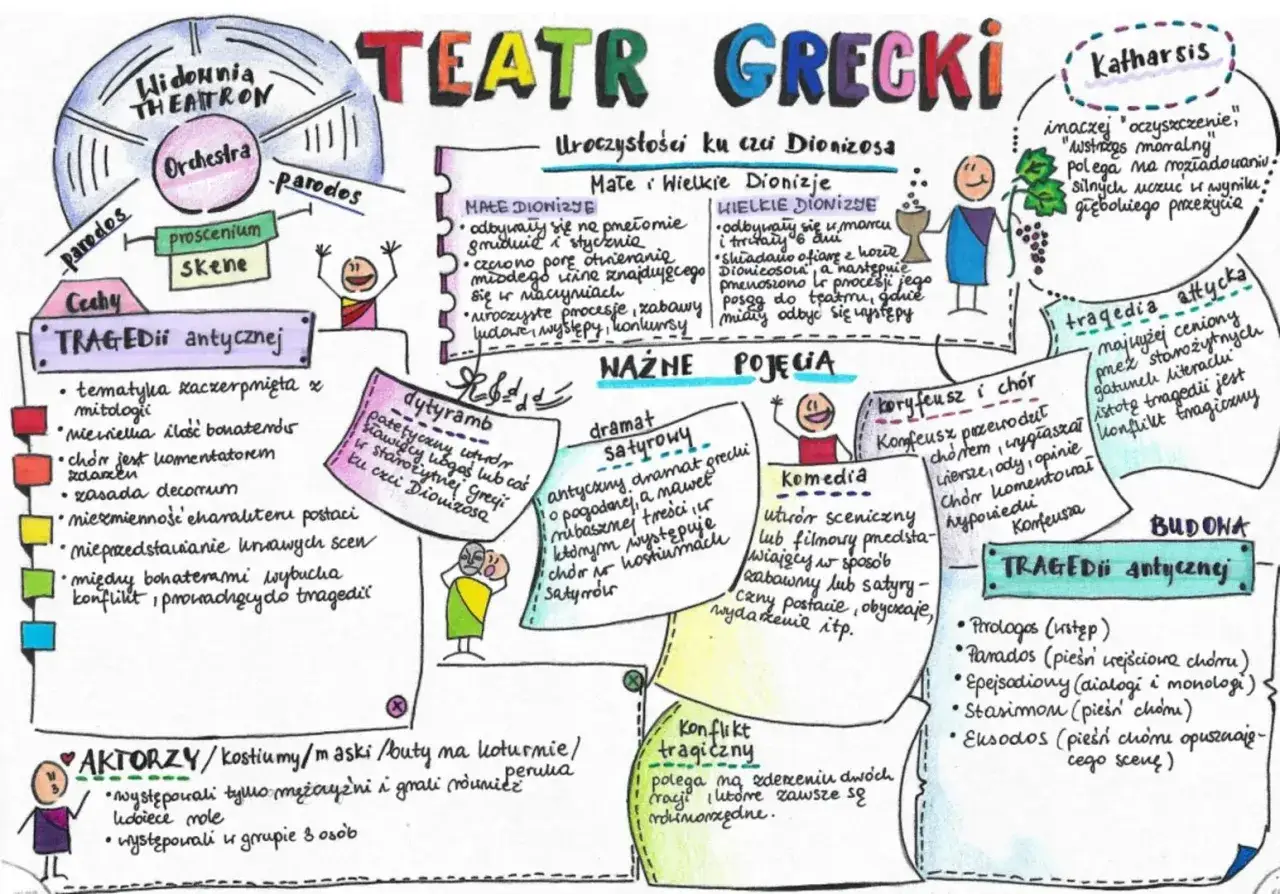 TEATR GRECKI
Widownia
THEATRON
Orchestra
parodos
parodos
proscenium
skene
Uroczystości ku czci Dionizosa
Małe i Wielkie Dionizje
MAŁE DIONIZJE
• odbywały się na przełomie
grudnia i stycznia
• czczono porę otwierania
młodego wina znajdującego
się w naczyniach
• uroczyste procesje, zabawy
ludowe, występy, konkursy
WIELKIE DIONIZJE
• odbywały się w marcu
i trwały 6 dni
• składano ofiarę z kozła
Dionizosowi, a następnie
przenoszono w procesji jego
posąg do teatru, gdzie
miały odbyć się występy
Katharsis
inaczej "oczyszczenie",
"wstrząs moralny"
polega na rozładowaniu
silnych uczuć w wyniku
głębokiego przeżycia
Cechy
TRAGEDii antycznej
• tematyka zaczerpnięta z
mitologii
• niewielka ilość bohaterów
• chór jest komentatorem
zdarzeń
• zasada decorum
• niezmienność charakteru postaci
• nieprzedstawianie krwawych scen
• między bohaterami wybucha
konflikt, prowadzący do tragedii
WAŻNE POJĘCIA
dytyramb
patetyczny utwór
sławiący kogoś lub coś
w starożytnej Grecji
ku czci Dionizosa
dramat
satyrowy
antyczny dramat grecki
o pogodnej, a nawet
rubasznej treści, w
którym występuje
chór w kostiumach
satyrów
komedia
utwór sceniczny
lub filmowy przedsta-
wiający w sposób
zabawny lub satyry-
czny postacie, obyczaje,
wydarzenia itp.
koryfeusz i chór
Koryfeusz przewodził
chórem, wygłaszał
wiersze, ody, opinie
Chór komentował
wypowiedzi
Koryfeusza
tragedia attycka
najwyżej ceniony
przez starożytnych
gatunek literacki
istotą tragedii jest
konflikt tragiczny
Konflikt
tragiczny
polega na zderzeniu dwóch
racji, które zawsze są
równorzędne.
BUDOWA
TRAGEDii antycznej
• Prologos (wstęp)
• Parados (pieśń wejściowa chóru)
• Epejsodiony (dialogi i monologi)
• Stasimon (pieśń chóru)
• Eksodos (pieśń chóru opuszczają-
cego scenę)
AKTORZY/kostiumy/maski/buty na koturnie/
peruka
• występowali tylko mężczyźni i grali również
kobiece role
• występowali w grupie 3 osób